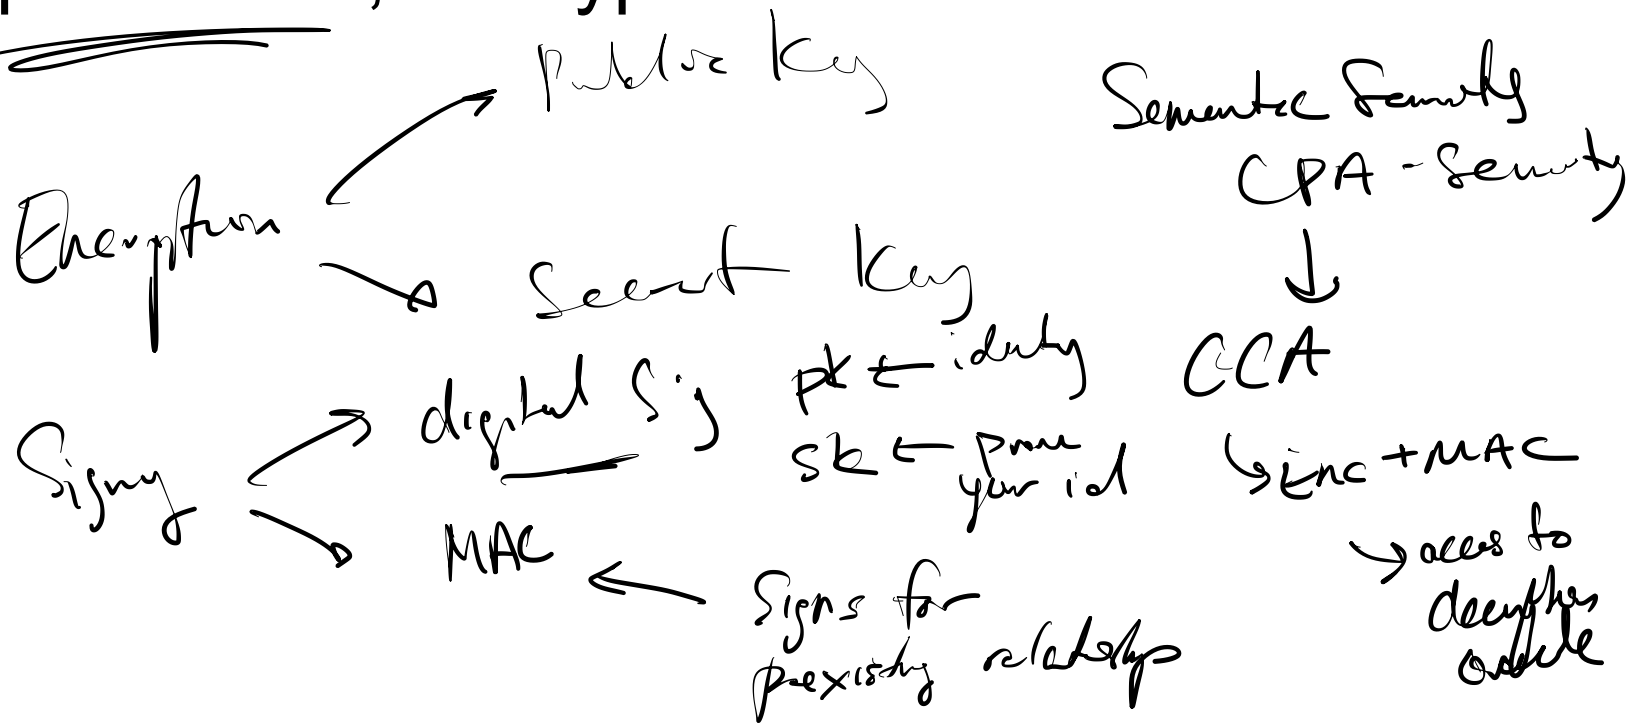 Public Key
Encryption
Secret Key
Signing
digital Sig
MAC
pk ← identity
sk ← prove
your id
Signs for
preexisting relationship
Semantic Security
CPA - Security
↓
CCA
↳ Enc + MAC
→ access to
decryption
oracle